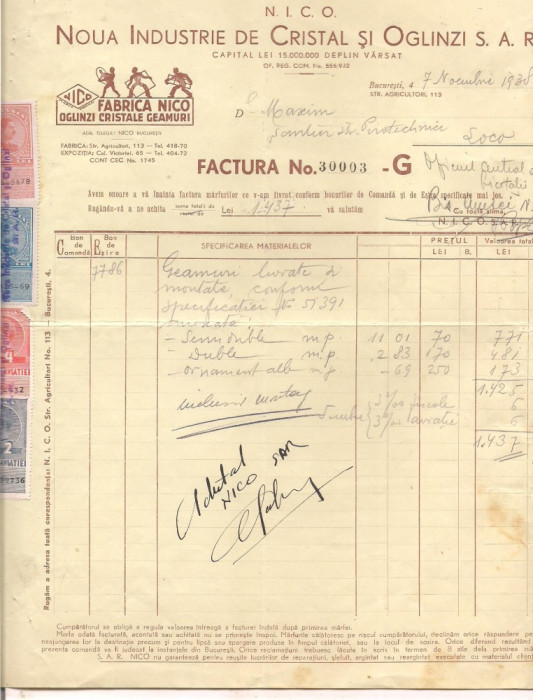 N. I. C. O.
NOUA INDUSTRIE DE CRISTAL ȘI OGLINZI S. A. R
CAPITAL LEI 15.000.000 DEPLIN VĂRSAT
OF. REG. COM. No. 556/932
NICO
FABRICA NICO
OGLINZI CRISTALE GEAMURI
ADR. TELEGR.: NICO BUCUREȘTI
FABRICA: Str. Agricultori, 113 — Tel. 418-70
EXPOZIȚIA: Cal. Victoriei, 65 — Tel. 404-72
CONT CEC No. 1745
București, 4 7 Noembrie 1938
STR. AGRICULTORI, 113
D Maxim
Șantier Pirotechnici
Loco
FACTURA No. 30003 - G
Oficiul Central
Avem onoare a vă înainta factura mărfurilor ce v-am livrat conform bonurilor de Comandă și de Eșire specificate mai jos.
Rugându-vă a ne achita suma totală de Lei 1.437 vă salutăm
Cu toată stima
N. I. C. O. S. A. R.
Bon de Comandă
Bon de Eșire
SPECIFICAREA MATERIALELOR
PREȚUL
LEI B.
Valoarea total
LEI
7786
Geamuri livrate și
montate conform
specificației No 51391
anexată:
- Semiduble m.p. 11 01 70 771
- Duble m.p. 2 83 170 481
- ornament alb m.p. - 69 250 173
1.425
inclusiv montaj
3%
6
3%
6
1.437
Achitat
NICO SAR
Rugăm a adresa toată corespondența: N. I. C. O. Str. Agricultori No. 113 — București, 4.
Cumpărătorul se obligă a regula valoarea întreagă a facturei îndată după primirea mărfei.
Marfa odată facturată, acontată sau achitată nu se primește înapoi. Mărfurile călătoresc pe riscul cumpărătorului, declinăm orice răspundere pe
neajungerea lor la destinație precum și pentru lipsă sau spargere produse în timpul călătoriei, sau la locul de sosire. Orice diferend rezultând
prezenta comandă va fi judecat la instanțele din București. Orice reclamațiuni trebuesc făcute în scris în termen de 8 zile dela primirea mă
S. A. R. NICO nu garantează pentru reușita lucrărilor de reparațiuni, șlefuit, argintat sau reargintat executate cu materialul client